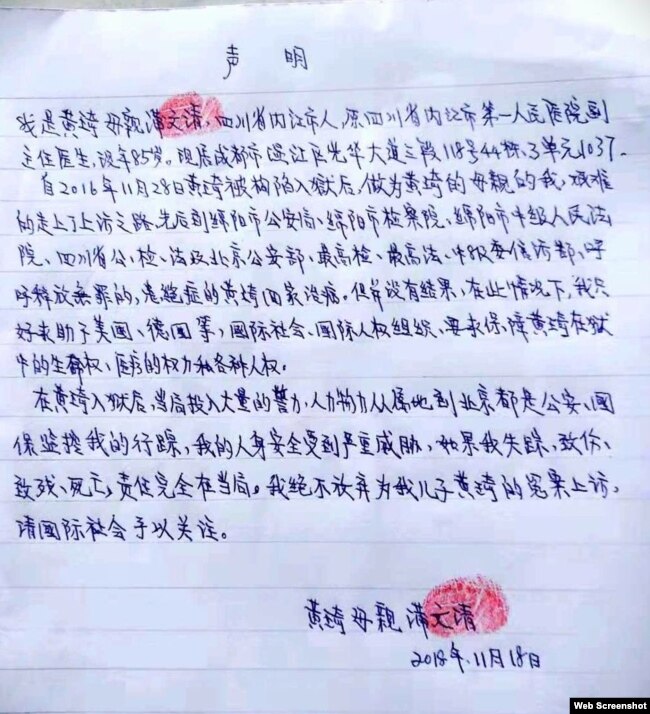 声明
我是黄琦母亲蒲文清,四川省内江市人,原四川省内江市第一人民医院副
主任医生,现年85岁。现居成都市温江区光华大道三段118号44栋、3单元1037.
自2016年11月28日黄琦被构陷入狱后,做为黄琦的母亲的我,艰难
的走上了上访之路,先后到绵阳市公安局、绵阳市检察院、绵阳市中级人民法
院、四川省公、检、法及北京公安部、最高检、最高法、中级委信访部、呼
吁释放无罪的,患绝症的黄琦回家治病。但并没有结果,在此情况下,我只
好求助于美国、德国等,国际社会、国际人权组织、要求保障黄琦在狱
中的生命权、医疗的权力和各种人权。
在黄琦入狱后,当局投入大量的警力,人力物力从属地到北京都是公安、国
保监控我的行踪,我的人身安全受到严重威胁,如果我失踪、致伤、
致残、死亡,责任完全在当局。我绝不放弃为我儿子黄琦的冤案上访,
请国际社会予以关注。
黄琦母亲 蒲文清
2018年.11月18日
Web Screenshot